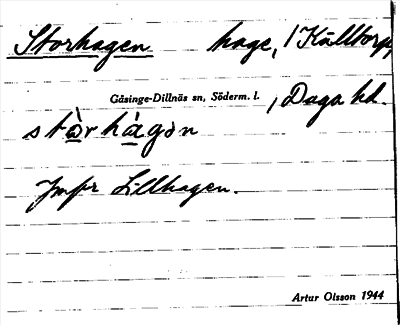 Storhagen hage, 1 Källtorp,
Gåsinge-Dillnäs sn, Söderm. l. , Daga hd.
stòrhàgən
Jmfr Lillhagen.
Artur Olsson 1944